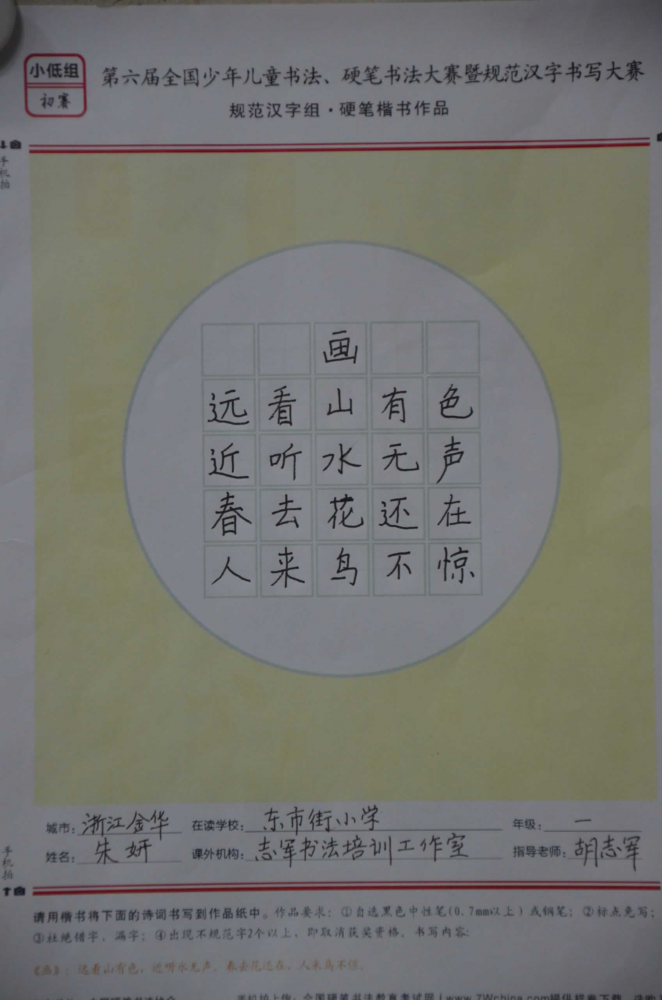 小低组
初赛
第六届全国少年儿童书法、硬笔书法大赛暨规范汉字书写大赛
规范汉字组·硬笔楷书作品
手机拍
画
远看山有色
近听水无声
春去花还在
人来鸟不惊
城市：浙江金华 在读学校：东市街小学 年级：一
姓名：朱妍 课外机构：志军书法培训工作室 指导老师：胡志军
手机拍
请用楷书将下面的诗词书写到作品纸中。作品要求：①自选黑色中性笔(0.7mm以上)或钢笔；②标点免写；
③杜绝错字、漏字；④出现不规范字2个以上，即取消获奖资格。书写内容：
《画》：远看山有色，近听水无声。春去花还在，人来鸟不惊。